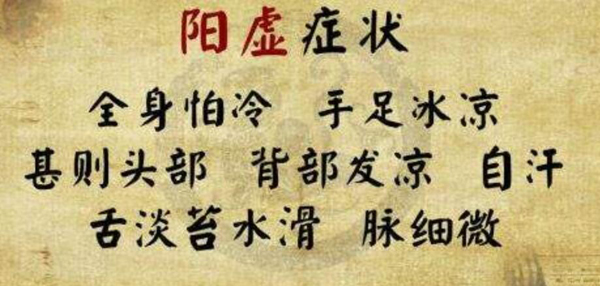 阳虚症状
全身怕冷 手足冰凉
甚则头部 背部发凉 自汗
舌淡苔水滑 脉细微